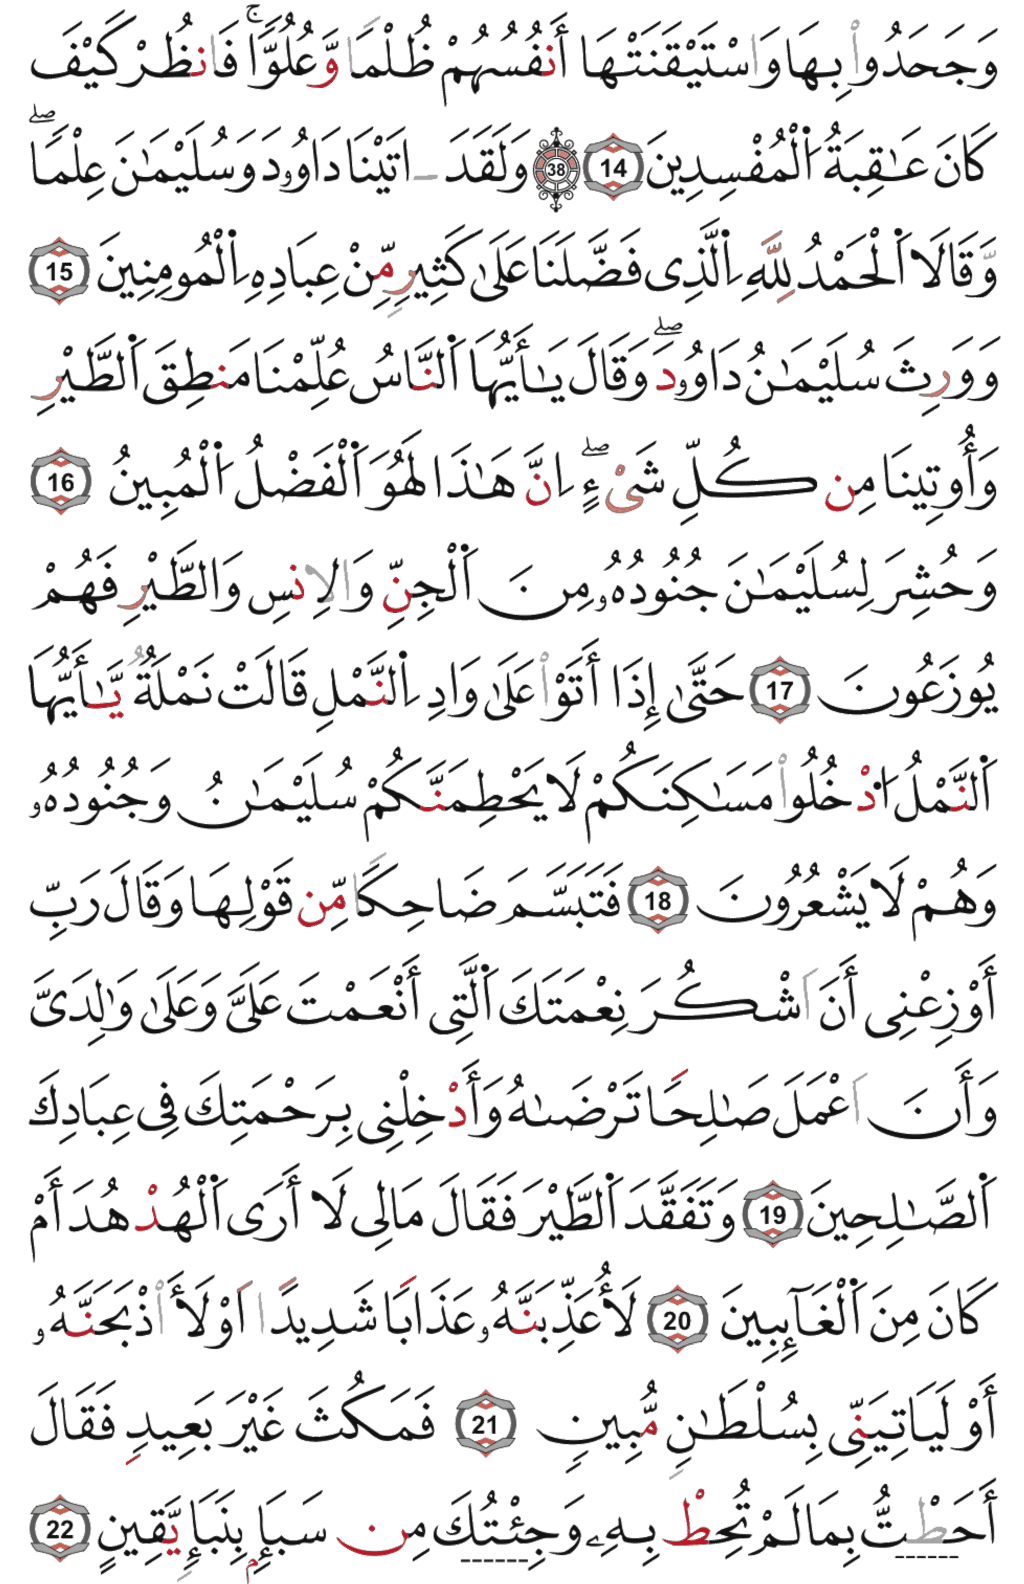 وَجَحَدُواْ بِهَا وَاسْتَيْقَنَتْهَا أَنفُسُهُمْ ظُلْمًا وَّعُلُوًّاۚ فَانظُرْ كَيْفَ
كَانَ عَـٰقِبَةُ اُ۬لْمُفْسِدِينَ 14 38 وَلَقَدَ ـ اتَيْنَا دَاوُۥدَ وَسُلَيْمَـٰنَ عِلْمًاۖ
وَّقَالَا اَ۬لْحَمْدُ لِلَّهِ اِ۬لَّذِى فَضَّلَنَا عَلَىٰ كَثِيرٍ مِّنْ عِبَادِهِ اِ۬لْمُومِنِينَ 15
وَوَرِثَ سُلَيْمَـٰنُ دَاوُۥدَۖ وَقَالَ يَـٰأَيُّهَا اَ۬لنَّاسُ عُلِّمْنَا مَنطِقَ اَ۬لطَّيْرِ
وَأُوتِينَا مِن كُلِّ شَىْءٍۖ اِنَّ هَـٰذَا لَهُوَ اَ۬لْفَضْلُ اُ۬لْمُبِينُ 16
وَحُشِرَ لِسُلَيْمَـٰنَ جُنُودُهُۥ مِنَ اَ۬لْجِنِّ وَالِانسِ وَالطَّيْرِ فَهُمْ
يُوزَعُونَ 17 حَتَّىٰ إِذَا أَتَوْاْ عَلَىٰ وَادِ اِ۬لنَّمْلِ قَالَتْ نَمْلَةٌ يَّـٰأَيُّهَا
اَ۬لنَّمْلُ اُ۟دْخُلُواْ مَسَـٰكِنَكُمْ لَا يَحْطِمَنَّكُمْ سُلَيْمَـٰنُ وَجُنُودُهُۥ
وَهُمْ لَا يَشْعُرُونَ 18 فَتَبَسَّمَ ضَاحِكًا مِّن قَوْلِهَا وَقَالَ رَبِّ
أَوْزِعْنِى أَنَ اَشْكُرَ نِعْمَتَكَ اَ۬لَّتِى أَنْعَمْتَ عَلَىَّ وَعَلَىٰ وَٰلِدَىَّ
وَأَنَ اَعْمَلَ صَـٰلِحًا تَرْضَـىٰهُ وَأَدْخِلْنِى بِرَحْمَتِكَ فِى عِبَادِكَ
اَ۬لصَّـٰلِحِينَ 19 وَتَفَقَّدَ اَ۬لطَّيْرَ فَقَالَ مَالِى لَا أَرَى اَ۬لْهُدْهُدَ أَمْ
كَانَ مِنَ اَ۬لْغَآئِبِينَ 20 لَأُعَذِّبَنَّهُۥ عَذَابًا شَدِيدًا اَوْ لَأَاْذْبَحَنَّهُۥ
أَوْ لَيَاتِيَنِّى بِسُلْطَـٰنٍ مُّبِينٍ 21 فَمَكُثَ غَيْرَ بَعِيدٍ فَقَالَ
أَحَطْتُّ بِمَا لَمْ تُحِطْ بِهِۦ وَجِئْتُكَ مِن سَبَإِۭ بِنَبَإٍ يَّقِينٍ 22